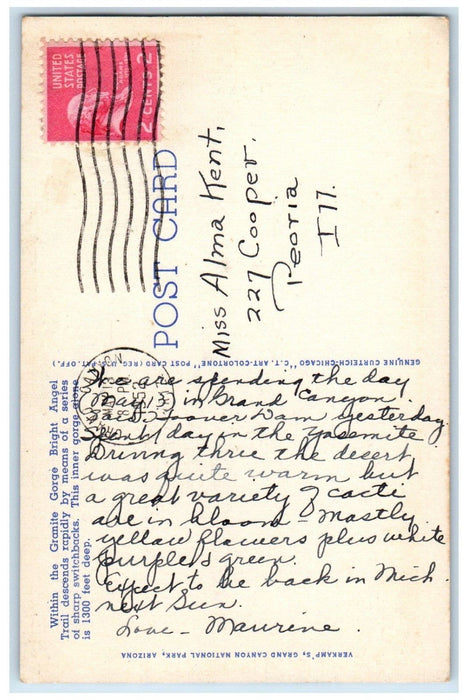 UNITED
STATES
POSTAGE
ADAMS
2 CENTS 2
POST CARD
Miss Alma Kent,
227 Cooper.
Peoria
Ill.
GENUINE CURTEICH-CHICAGO "C.T. ART-COLORTONE" POST CARD (REG. U.S. PAT. OFF.)
We are spending the day
May 13 in Grand Canyon.
Hoover Dam yesterday.
Spent day in the Yosemite
Driving thru the desert
was quite warm but
a great variety of cacti
are in bloom - Mostly
yellow flowers plus white
purple & green.
Expect to be back in Mich.
next Sun.
Love - Maurine.
Within the Granite Gorge Bright Angel
Trail descends rapidly by means of a series
of sharp switchbacks. This inner gorge alone
is 1300 feet deep.
VERKAMP'S, GRAND CANYON NATIONAL PARK, ARIZONA